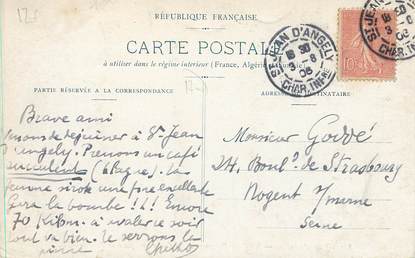 12-
RÉPUBLIQUE FRANÇAISE
CARTE POSTALE
à utiliser dans le régime intérieur (France, Algérie
PARTIE RÉSERVÉE A LA CORRESPONDANCE
ADRESSE DU DESTINATAIRE
ST JEAN D'ANGELY
18 30
3 - 8
06
CHAR. INFRE
ST JEAN
18 30
3 - 8
06
CHAR.
10
Brave ami
de déjeuner à St Jean
d'angely. Prenons un café
succulent
femme une fine excellente
la bombe !!! Encore
70 Kilom. à avaler ce soir
tout va bien. te serrons la
Monsieur Goddé
24, Boulᵈ. de Strasbourg
Nogent s/marne
Seine